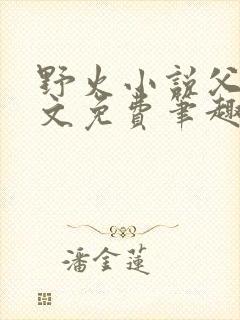 野火小说父
文免费笔趣
潘金莲